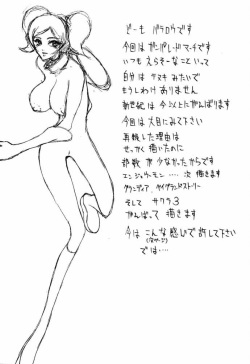 どーも パラロウです
今回はガンパレードマーチです
いつも えらそーなこといって
自分は マヌケ みたいで
もうしわけ ありません
新世紀は 今以上にがんばります
今回は 大目にみて下さい
再録した理由は
せっかく 描いたのに
部数が少なかったからです
エンジェリーモン…… 次 描きます
グランディア、
そして サクラ3
がんばって 描きます
今は こんな感じで 許して下さい
では…